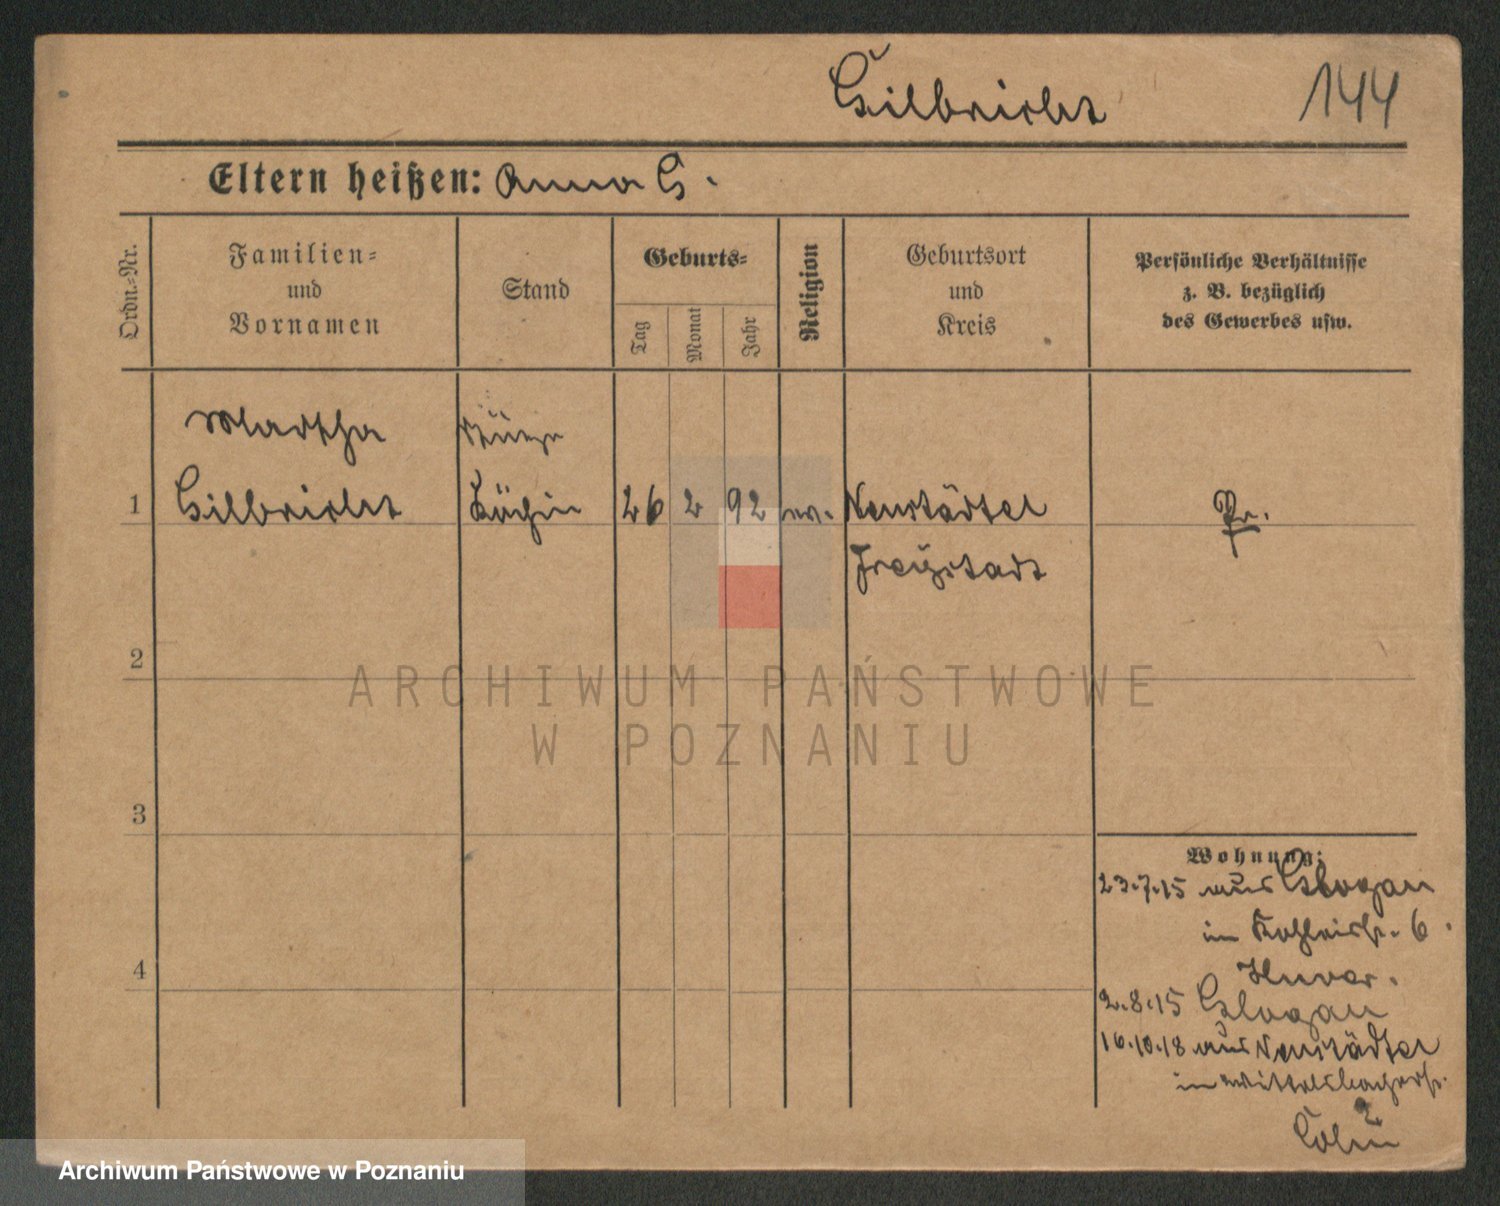 Gilbricht 144
Eltern heißen: Anna G.
Ordn.-Nr.
Familien-
und
Vornamen
Stand
Geburts-
Tag
Monat
Jahr
Religion
Geburtsort
und
Kreis
Persönliche Verhältnisse
z. B. bezüglich
des Gewerbes usw.
Martha Stütze
1 Gilbricht Köchin 26 2 92 ev. Neustädtel Pr.
Freystadt
2
3
4
Wohnung:
23.7.15 aus Glogau
in 6
2.8.15 Glogau
16.10.18 aus Neustädtel
in Wittelsbacherstr.
2
ARCHIWUM PAŃSTWOWE
W POZNANIU
Archiwum Państwowe w Poznaniu